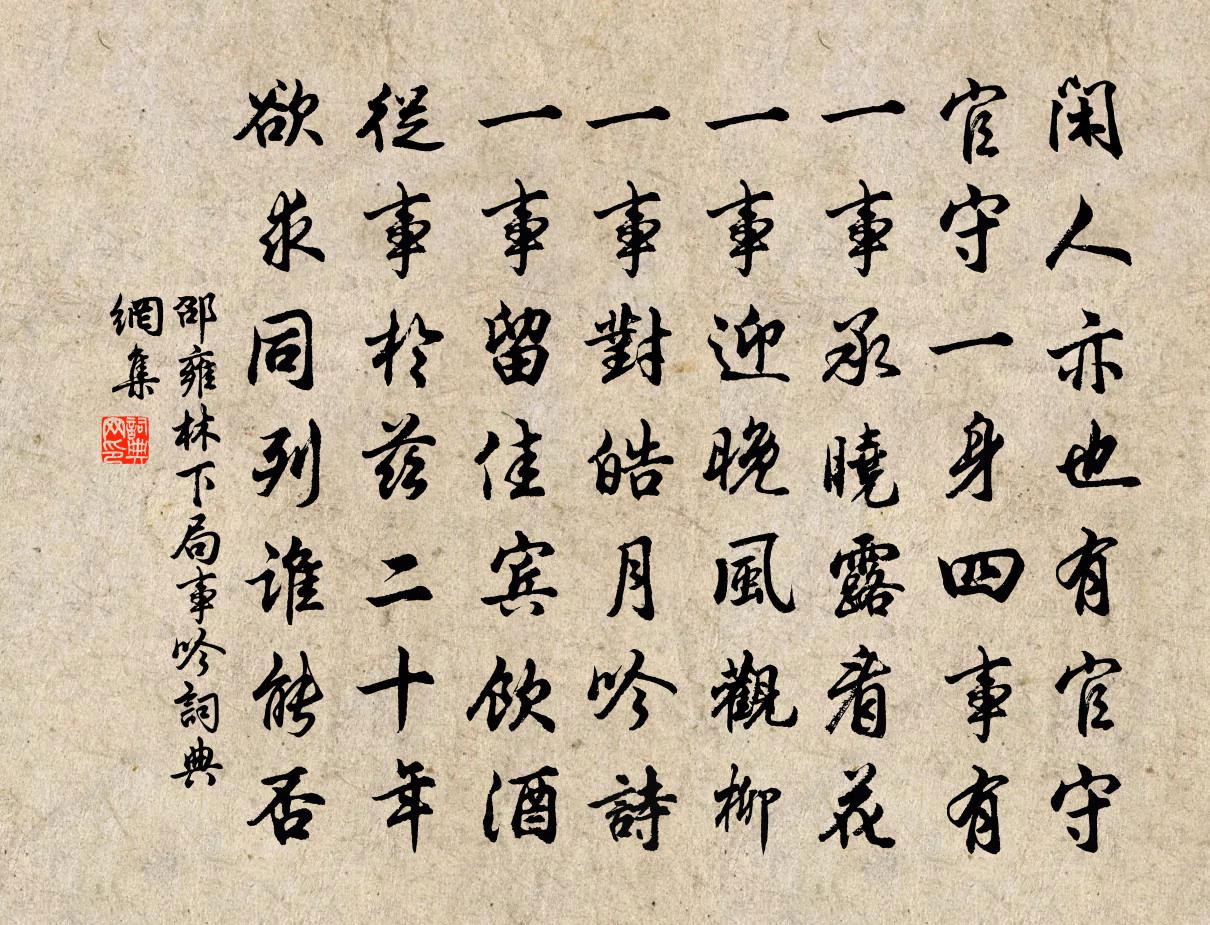 閑人亦也有官守
官守一身四事有
一事承曉露看花
一事迎晚風觀柳
一事對皓月吟詩
一事留佳賓飲酒
從事於茲二十年
欲求同列誰能否
邵雍林下局事吟詞典
網集
詞典
网印